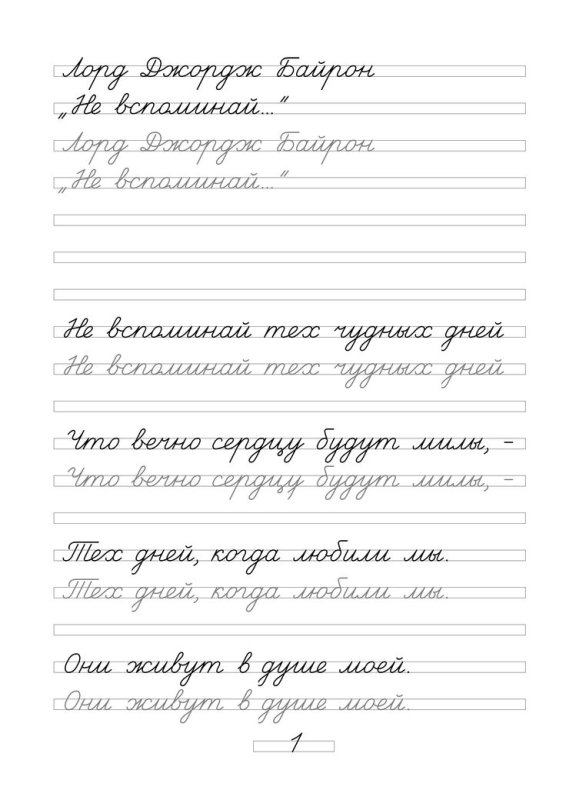 Лорд Джордж Байрон
„Не вспоминай...“
Лорд Джордж Байрон
„Не вспоминай...“
Не вспоминай тех чудных дней
Не вспоминай тех чудных дней
Что вечно сердцу будут милы, -
Что вечно сердцу будут милы, -
Тех дней, когда любили мы.
Тех дней, когда любили мы.
Они живут в душе моей.
Они живут в душе моей.
1